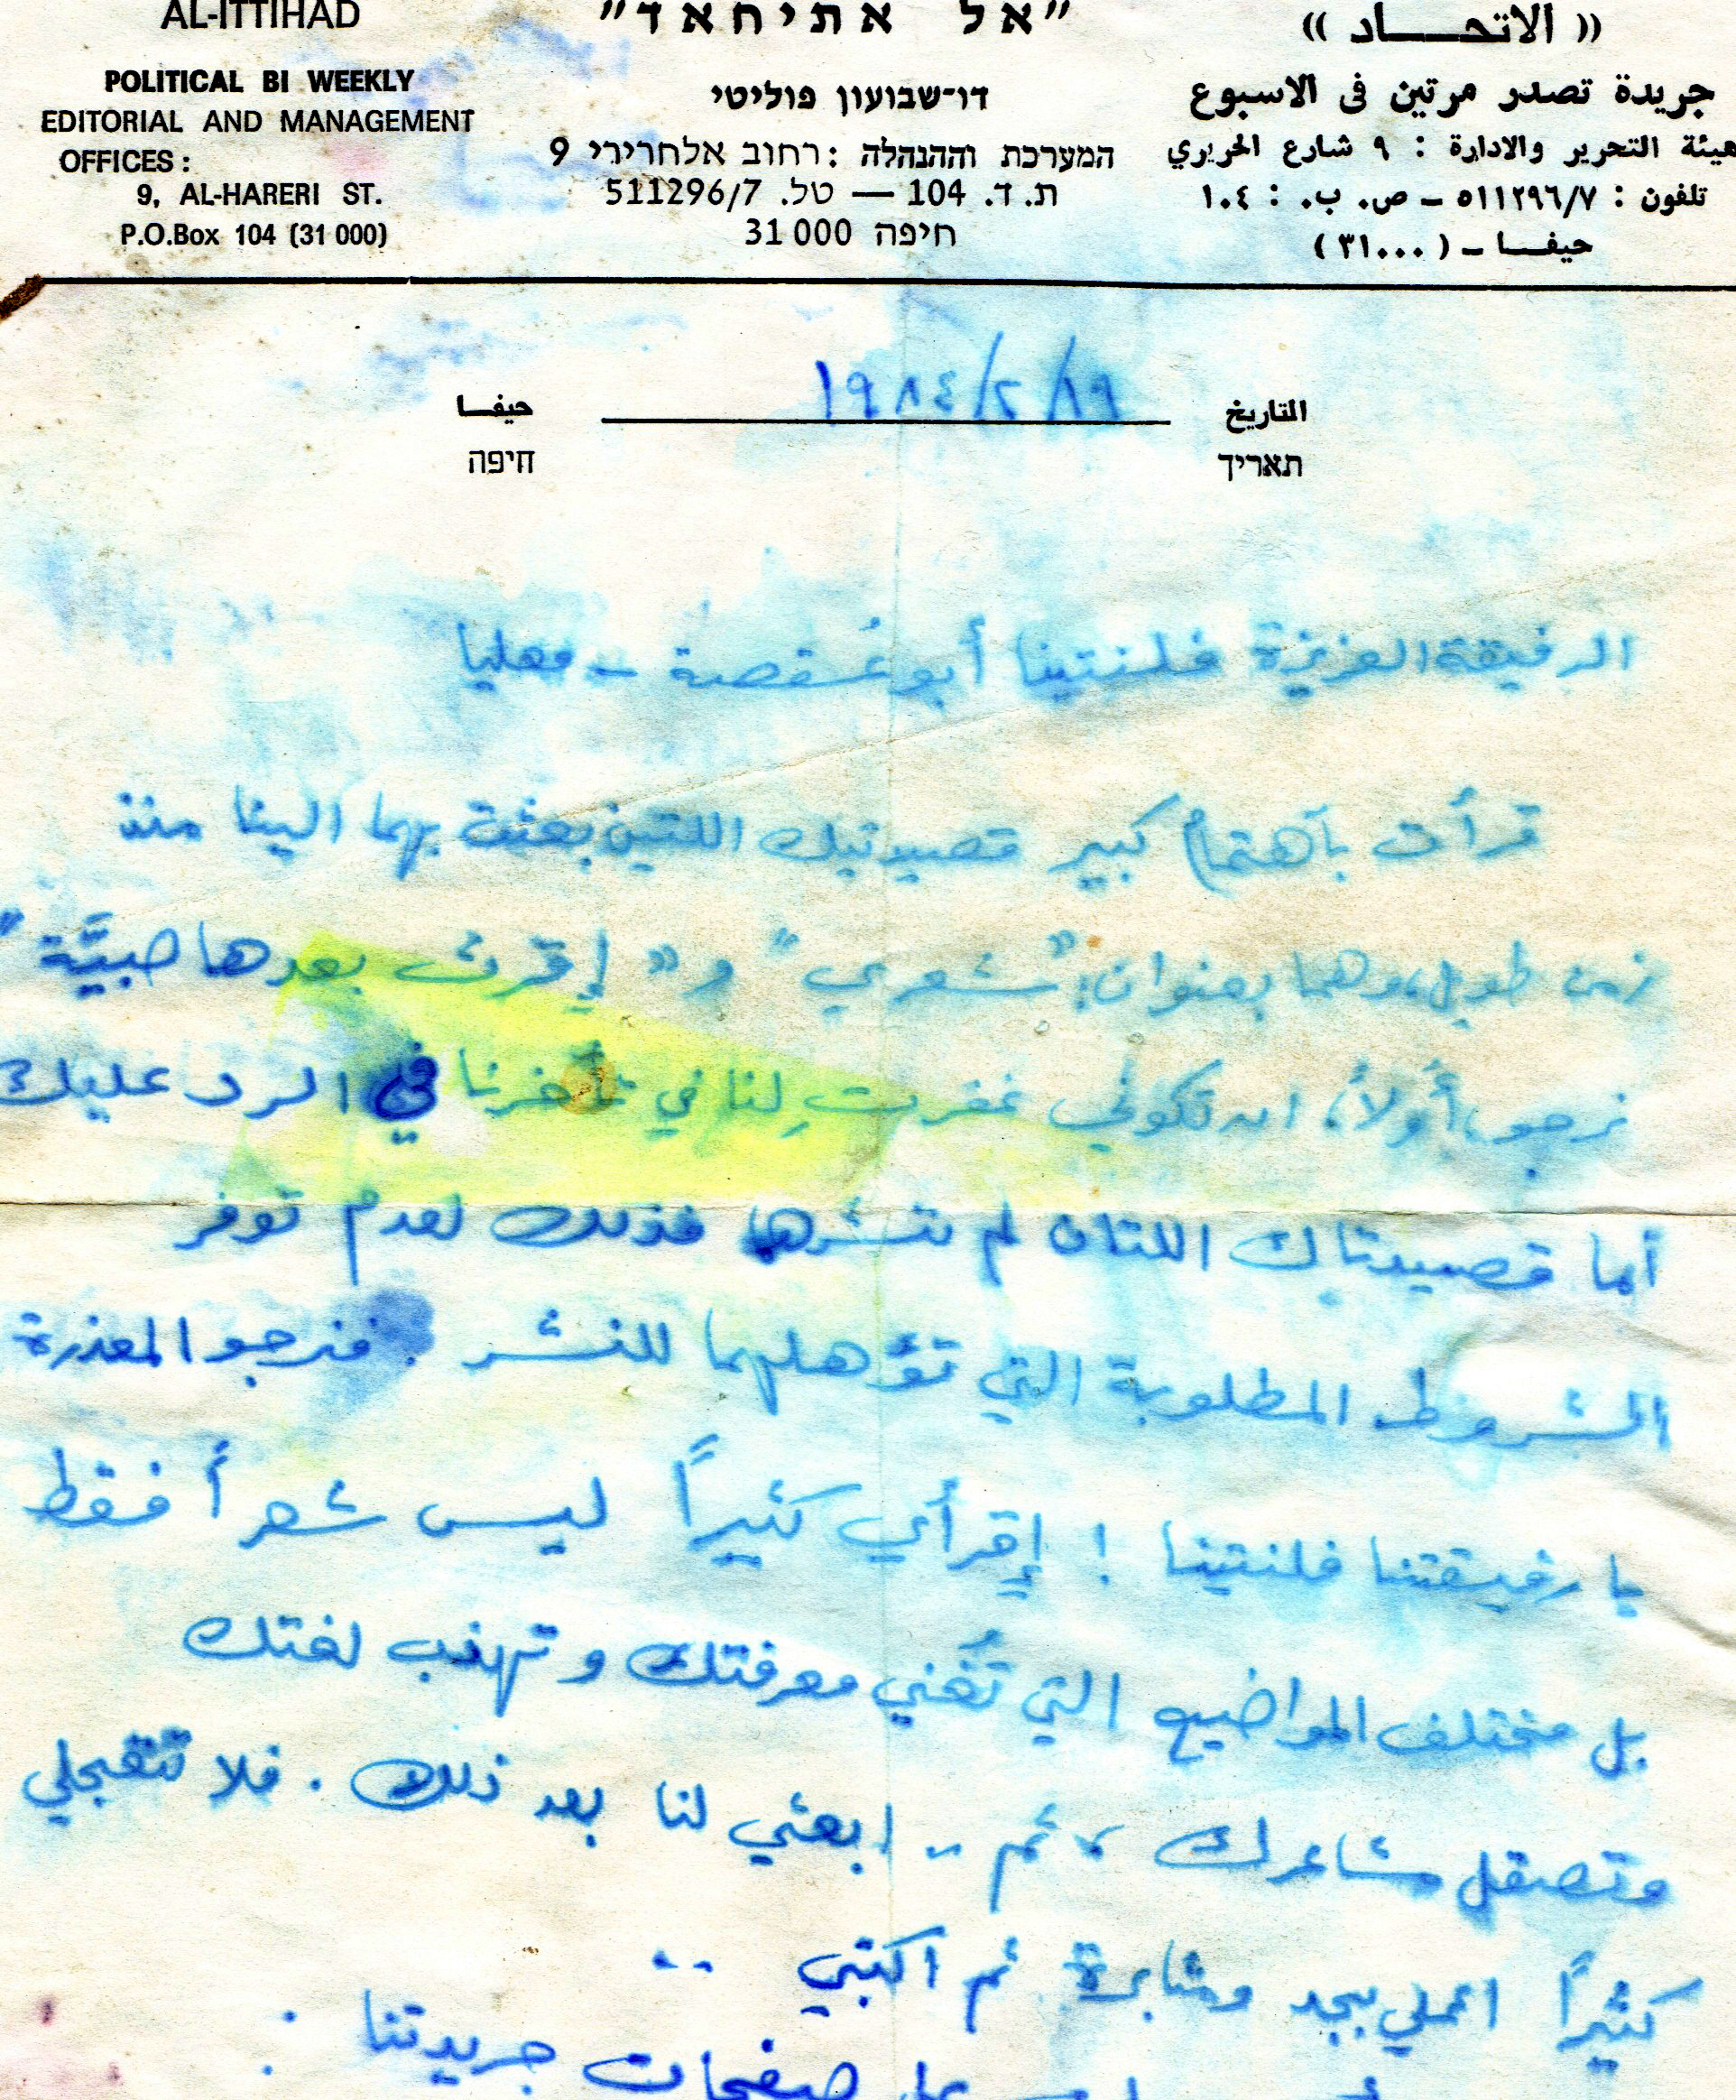 AL-ITTIHAD
POLITICAL BI WEEKLY
EDITORIAL AND MANAGEMENT
OFFICES:
9, AL-HARERI ST.
P.O.Box 104 (31 000)
"אל אתיחאד"
דו-שבועון פוליטי
המערכת וההנהלה: רחוב אלחרירי 9
ת.ד. 104 — טל. 511296/7
חיפה 31000
(( الاتحـــاد ))
جريدة تصدر مرتين في الاسبوع
هيئة التحرير والادارة : ٩ شارع الحريري
تلفون : ٥١١٢٩٦/٧ ـ ص. ب. : ١٠٤
حيفـا ـ ( ٣١٠٠٠ )
التاريخ ١٩/٢/١٩٨٤ حيفـا
תאריך חיפה
الرفيقة العزيزة فلنتينا أبو عُقصة - معليا
قرأت بآهتمام كبير قصيدتيك اللتين بعثت بهما الينا منذ
زمن طويل، وهما بعنوان: "شعري" و "إقرت بعدها صبيَّة"
نرجو، أولاً، ان تكوني غفرتِ لنا في تأخرنا في الرد عليك
أما قصيدتاك اللتان لم ننشرهما فذلك لعدم توفر
الشروط المطلوبة التي تؤهلهما للنشر . فنرجو المعذرة
يا رفيقتنا فلنتينا ! إقرأي كثيراً ليس شعراً فقط
بل مختلف المواضيع التي تُغني معرفتك و تهذب لغتك
وتصقل مشاعرك ، ثم .. ابعثي لنا بعد ذلك . فلا تتعجلي
كثيراً اعملي بجد ومثابرة ثم اكتبي ..
على صفحات جريدتنا :